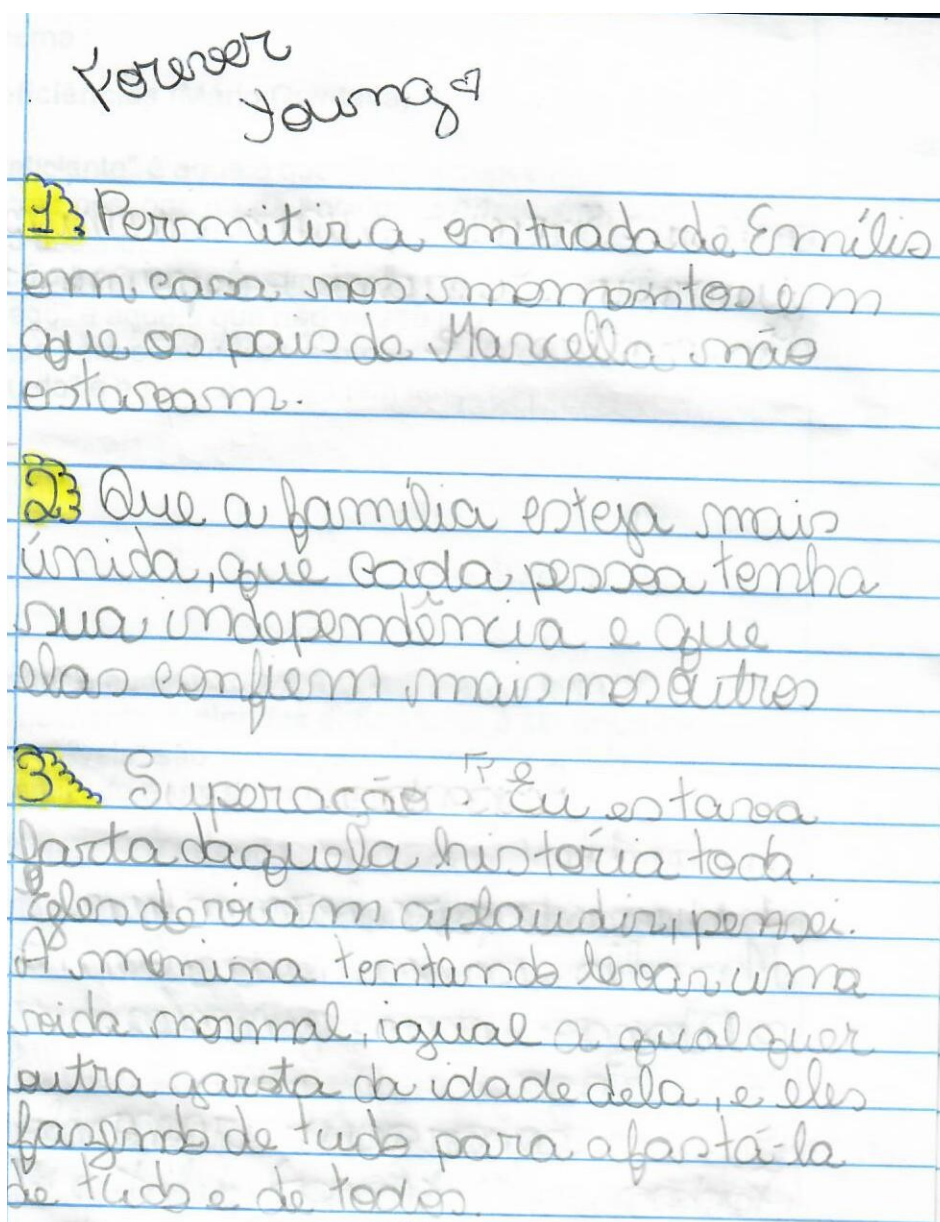 Forever
Young
1 Permitir a entrada de Emílio
em casa nos momentos em
que os pais de Marcella não
estavam.
2 Que a família esteja mais
únida, que cada pessoa tenha
sua independência e que
elas confiem mais nos outros
3 Superação: Eu estava
farta daquela história toda.
Eles deviam aplaudir, pensei.
A menina tentando levar uma
vida normal, igual a qualquer
outra garota da idade dela, e eles
fazendo de tudo para afastá-la
de tudo e de todos.